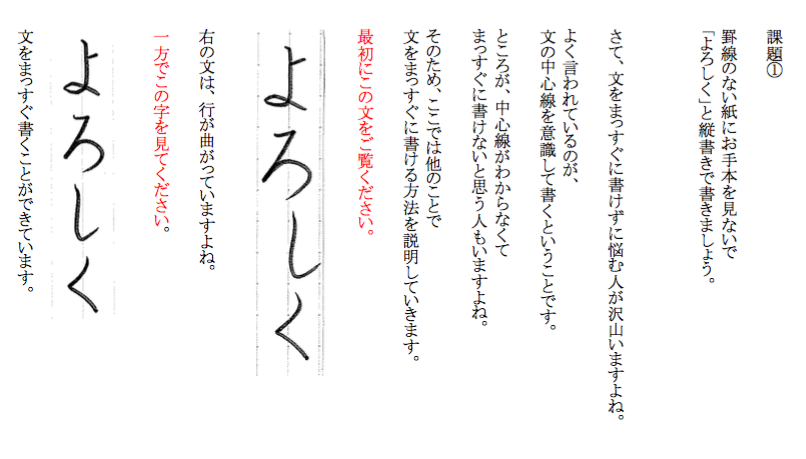 課題①
罫線のない紙にお手本を見ないで
「よろしく」と縦書きで書きましょう。
さて、文をまっすぐに書けずに悩む人が沢山いますよね。
よく言われているのが、
文の中心線を意識して書くということです。
ところが、中心線がわからなくて
まっすぐに書けないと思う人もいますよね。
そのため、ここでは他のことで
文をまっすぐに書ける方法を説明していきます。
最初にこの文をご覧ください。
よろしく
右の文は、行が曲がっていますよね。
一方でこの字を見てください。
よろしく
文をまっすぐ書くことができています。